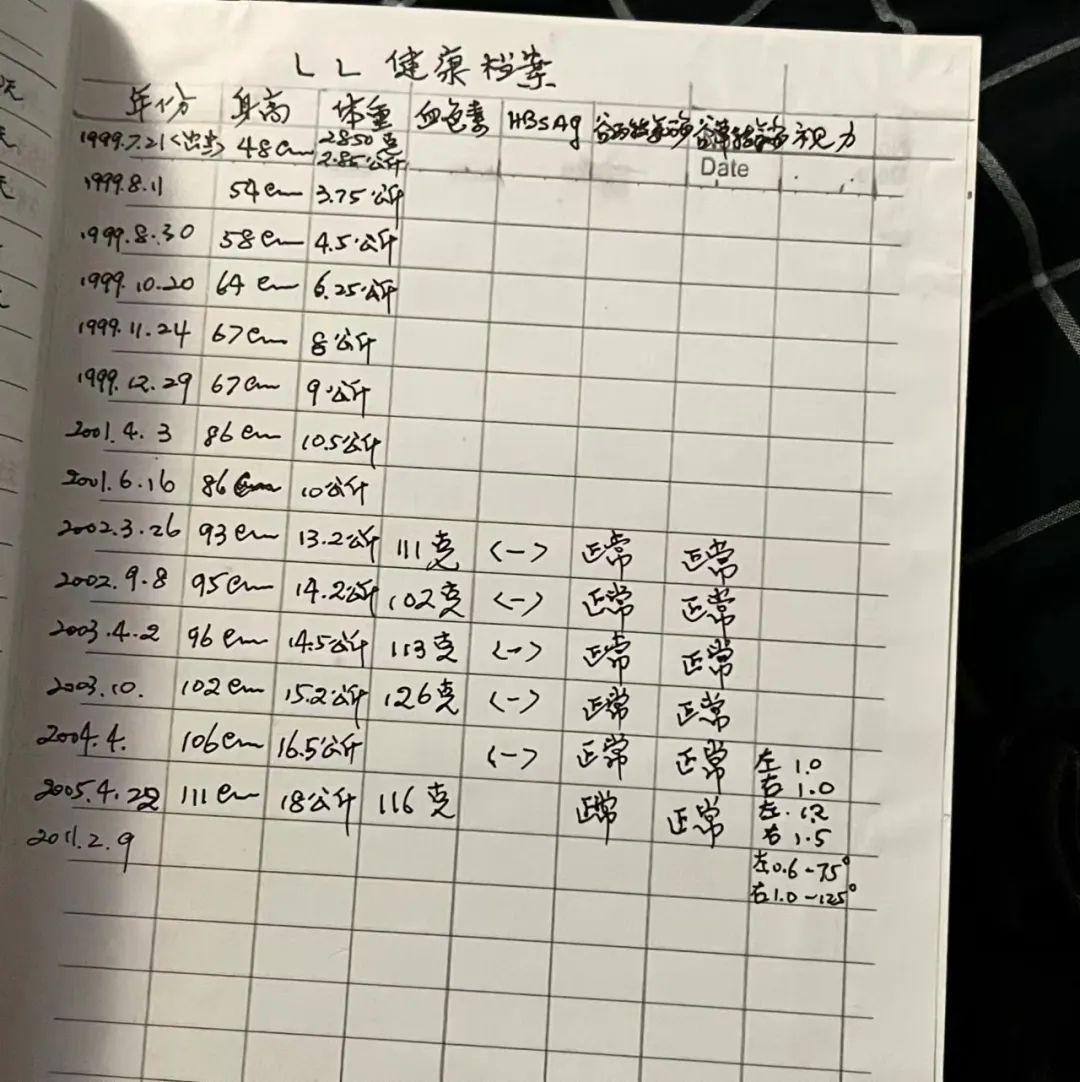 LL 健康档案
年份 身高 体重 血色素 HBsAg 谷丙转氨酶 视力
Date
1999.7.21(出生) 48cm 2850克 2.85公斤
1999.8.11 54cm 3.75公斤
1999.8.30 58cm 4.5公斤
1999.10.20 64cm 6.25公斤
1999.11.24 67cm 8公斤
1999.12.29 67cm 9公斤
2001.4.3 86cm 10.5公斤
2001.6.16 86cm 10公斤
2002.3.26 93cm 13.2公斤 111克 (-) 正常 正常
2002.9.8 95cm 14.2公斤 102克 (-) 正常 正常
2003.4.2 96cm 14.5公斤 113克 (-) 正常 正常
2003.10. 102cm 15.2公斤 126克 (-) 正常 正常
2004.4. 106cm 16.5公斤 (-) 正常 正常 左 1.0 右 1.0
2005.4.22 111cm 18公斤 116克 正常 正常 左 1.2 右 1.5
2011.2.9 左0.6-75° 右1.0-125°